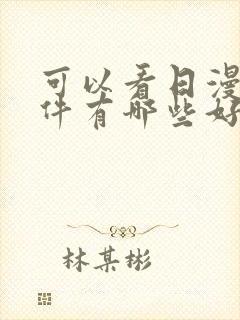 可以看日漫
件有哪些好
林某彬